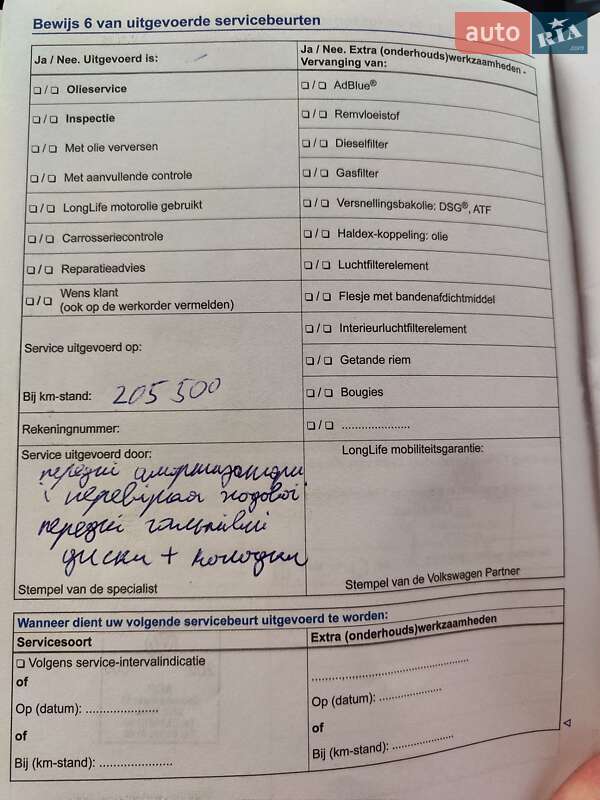 Bewijs 6 van uitgevoerde servicebeurten
auto RIA .com
Ja / Nee. Uitgevoerd is:
Ja / Nee. Extra (onderhouds)werkzaamheden -
Vervanging van:
❏ / ❏ Olieservice
❏ / ❏ AdBlue®
❏ / ❏ Inspectie
❏ / ❏ Remvloeistof
❏ / ❏ Met olie verversen
❏ / ❏ Dieselfilter
❏ / ❏ Met aanvullende controle
❏ / ❏ Gasfilter
❏ / ❏ LongLife motorolie gebruikt
❏ / ❏ Versnellingsbakolie: DSG®, ATF
❏ / ❏ Carrosseriecontrole
❏ / ❏ Haldex-koppeling: olie
❏ / ❏ Reparatieadvies
❏ / ❏ Luchtfilterelement
❏ / ❏ Wens klant
(ook op de werkorder vermelden)
❏ / ❏ Flesje met bandenafdichtmiddel
❏ / ❏ Interieurluchtfilterelement
Service uitgevoerd op:
❏ / ❏ Getande riem
Bij km-stand: 205 500
❏ / ❏ Bougies
Rekeningnummer:
❏ / ❏ .....................
Service uitgevoerd door:
LongLife mobiliteitsgarantie:
передні амортизатори
і перевірка ходової
передні гальмівні
диски + колодки
Stempel van de specialist
Stempel van de Volkswagen Partner
Wanneer dient uw volgende servicebeurt uitgevoerd te worden:
Servicesoort
Extra (onderhouds)werkzaamheden
❏ Volgens service-intervalindicatie
................................................
of
Op (datum): ......................
Op (datum): ......................
of
of
Bij (km-stand): ......................
Bij (km-stand): ......................